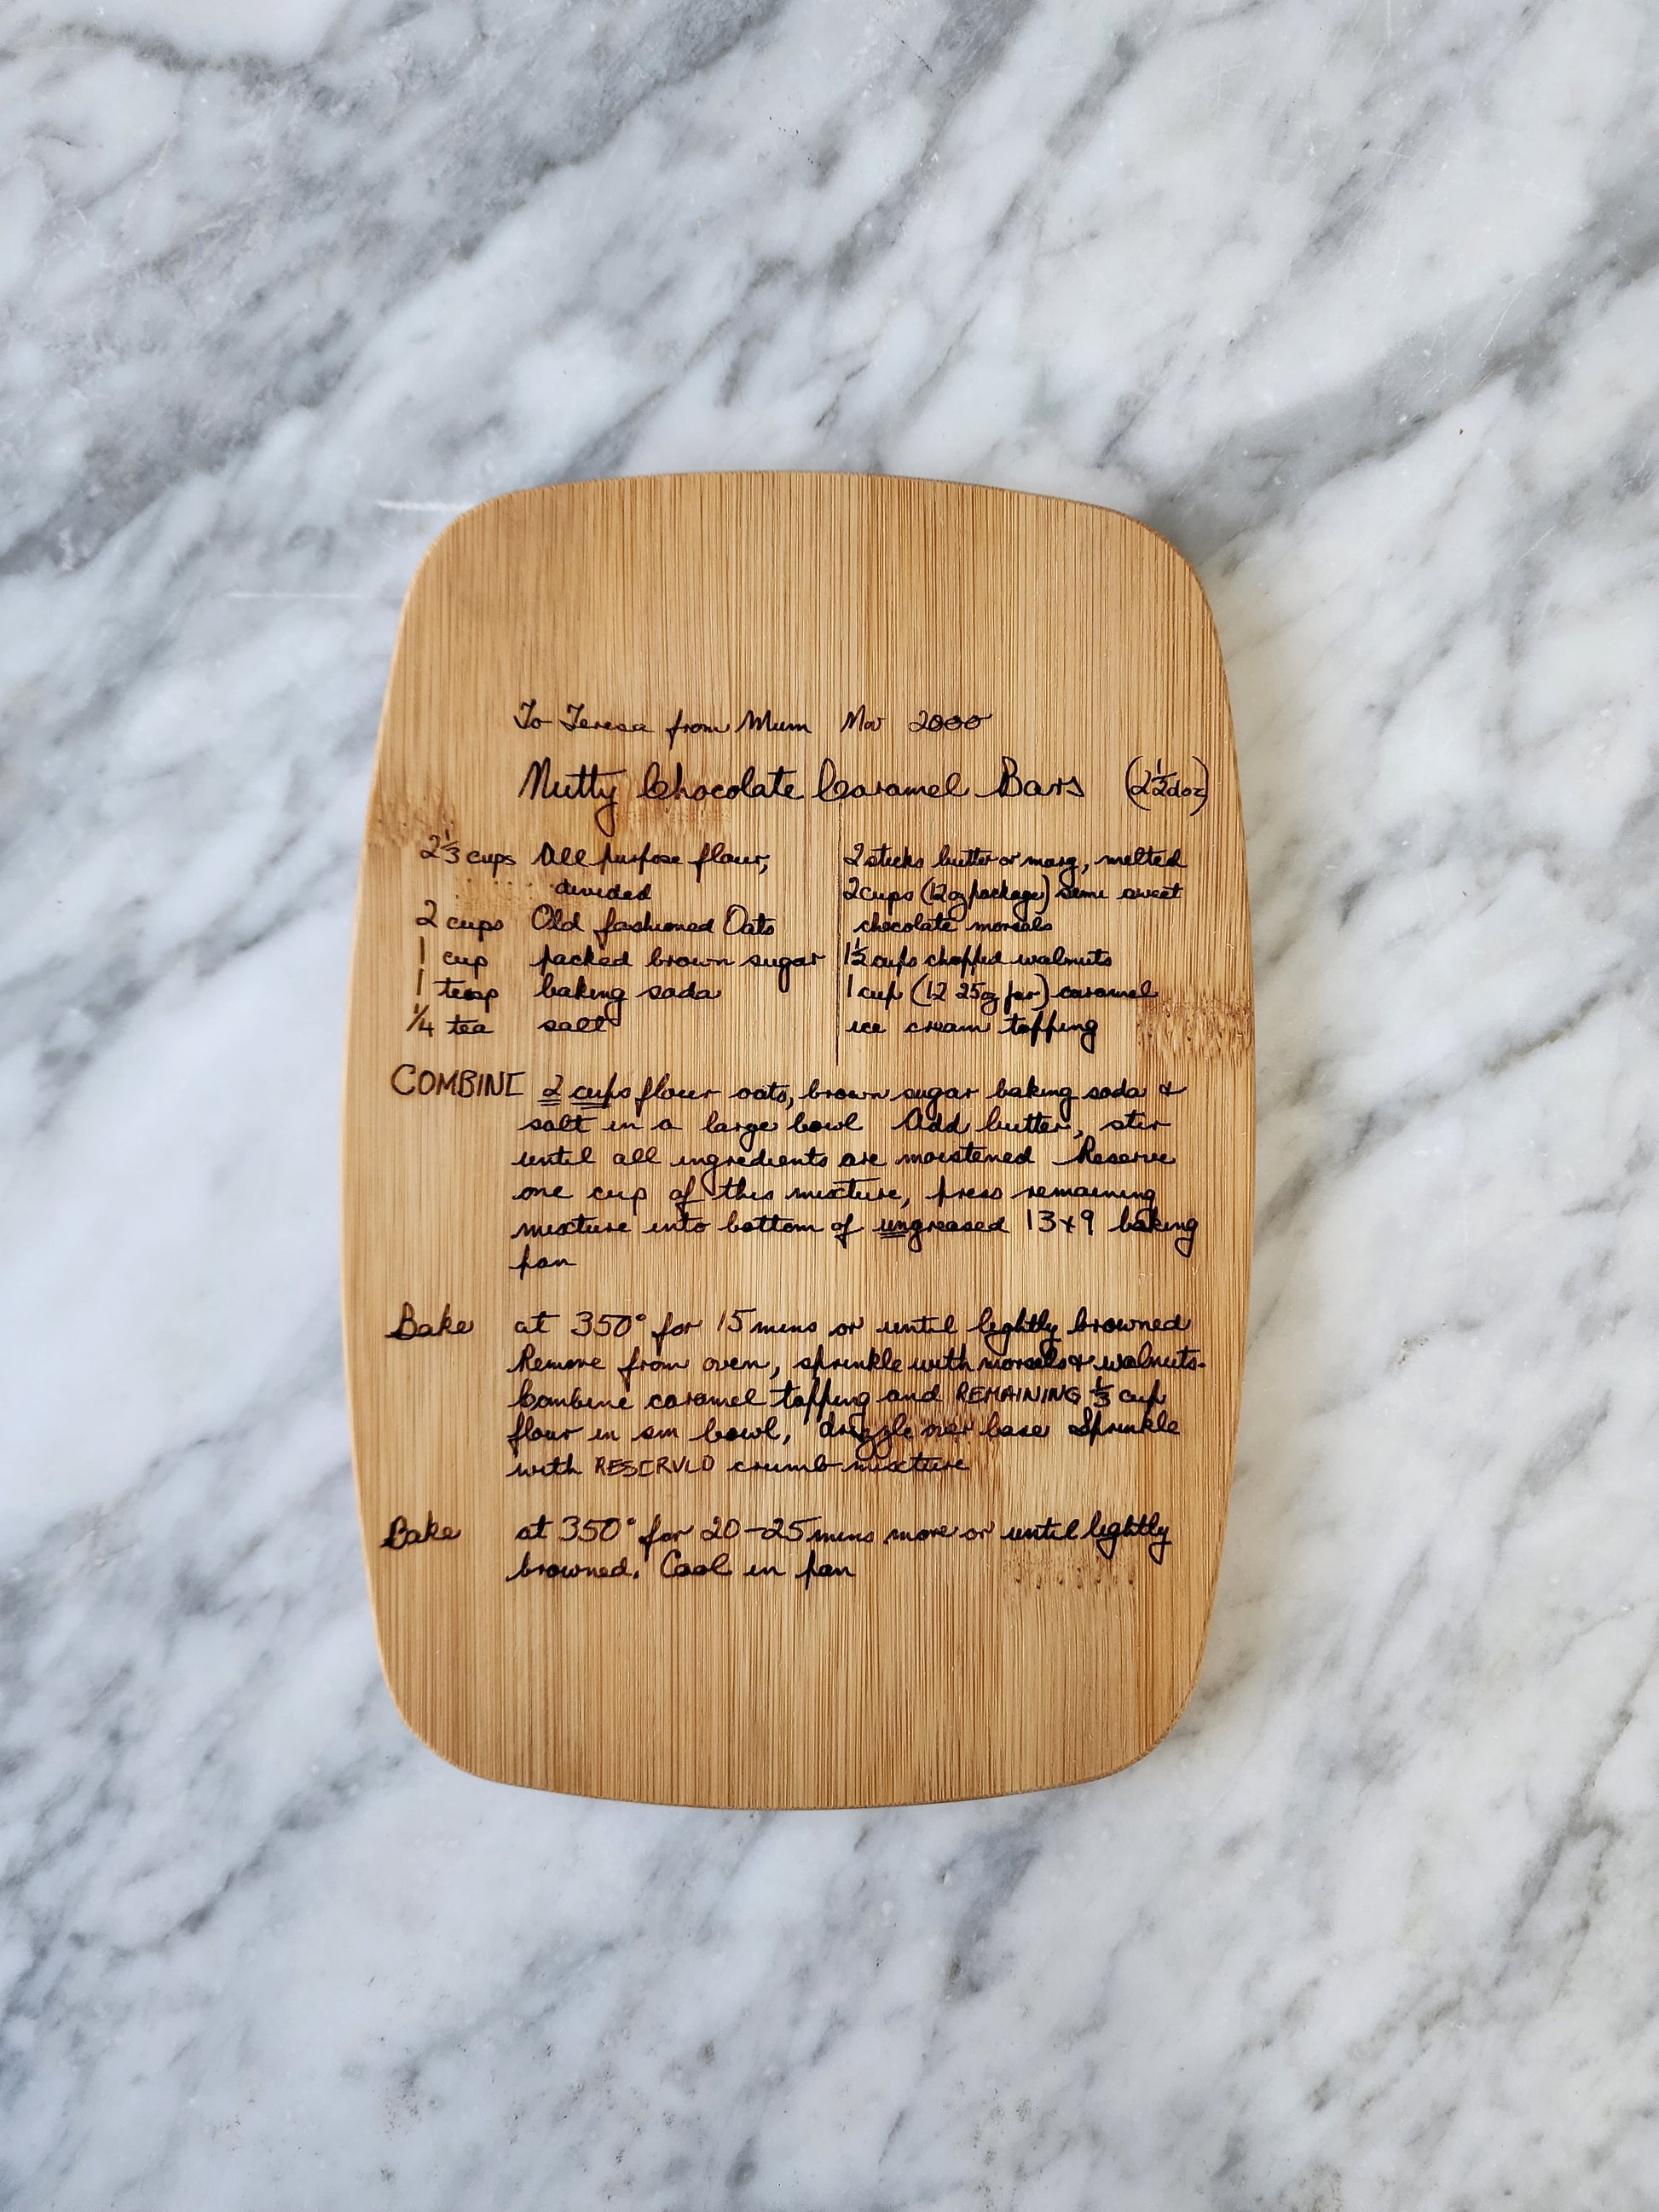 To Teresa from Mum Mar 2000
Nutty Chocolate Caramel Bars (2½doz)
2⅓ cups All purpose flour,
divided
2 cups Old fashioned Oats
1 cup packed brown sugar
1 teasp baking soda
¼ tea salt
2 sticks butter or marg, melted
2 cups (12 oz package) semi sweet
chocolate morsels
1½ cups chopped walnuts
1 cup (12 25 oz jar) caramel
ice cream topping
COMBINE 2 cups flour oats, brown sugar baking soda &
salt in a large bowl Add butter, stir
until all ingredients are moistened Reserve
one cup of this mixture, press remaining
mixture into bottom of ungreased 13x9 baking
pan
Bake at 350° for 15 mins or until lightly browned
Remove from oven, sprinkle with morsels & walnuts.
Combine caramel topping and REMAINING ⅓ cup
flour in sm bowl, drizzle over base Sprinkle
with RESERVED crumb mixture
Bake at 350° for 20-25 mins more or until lightly
browned. Cool in pan